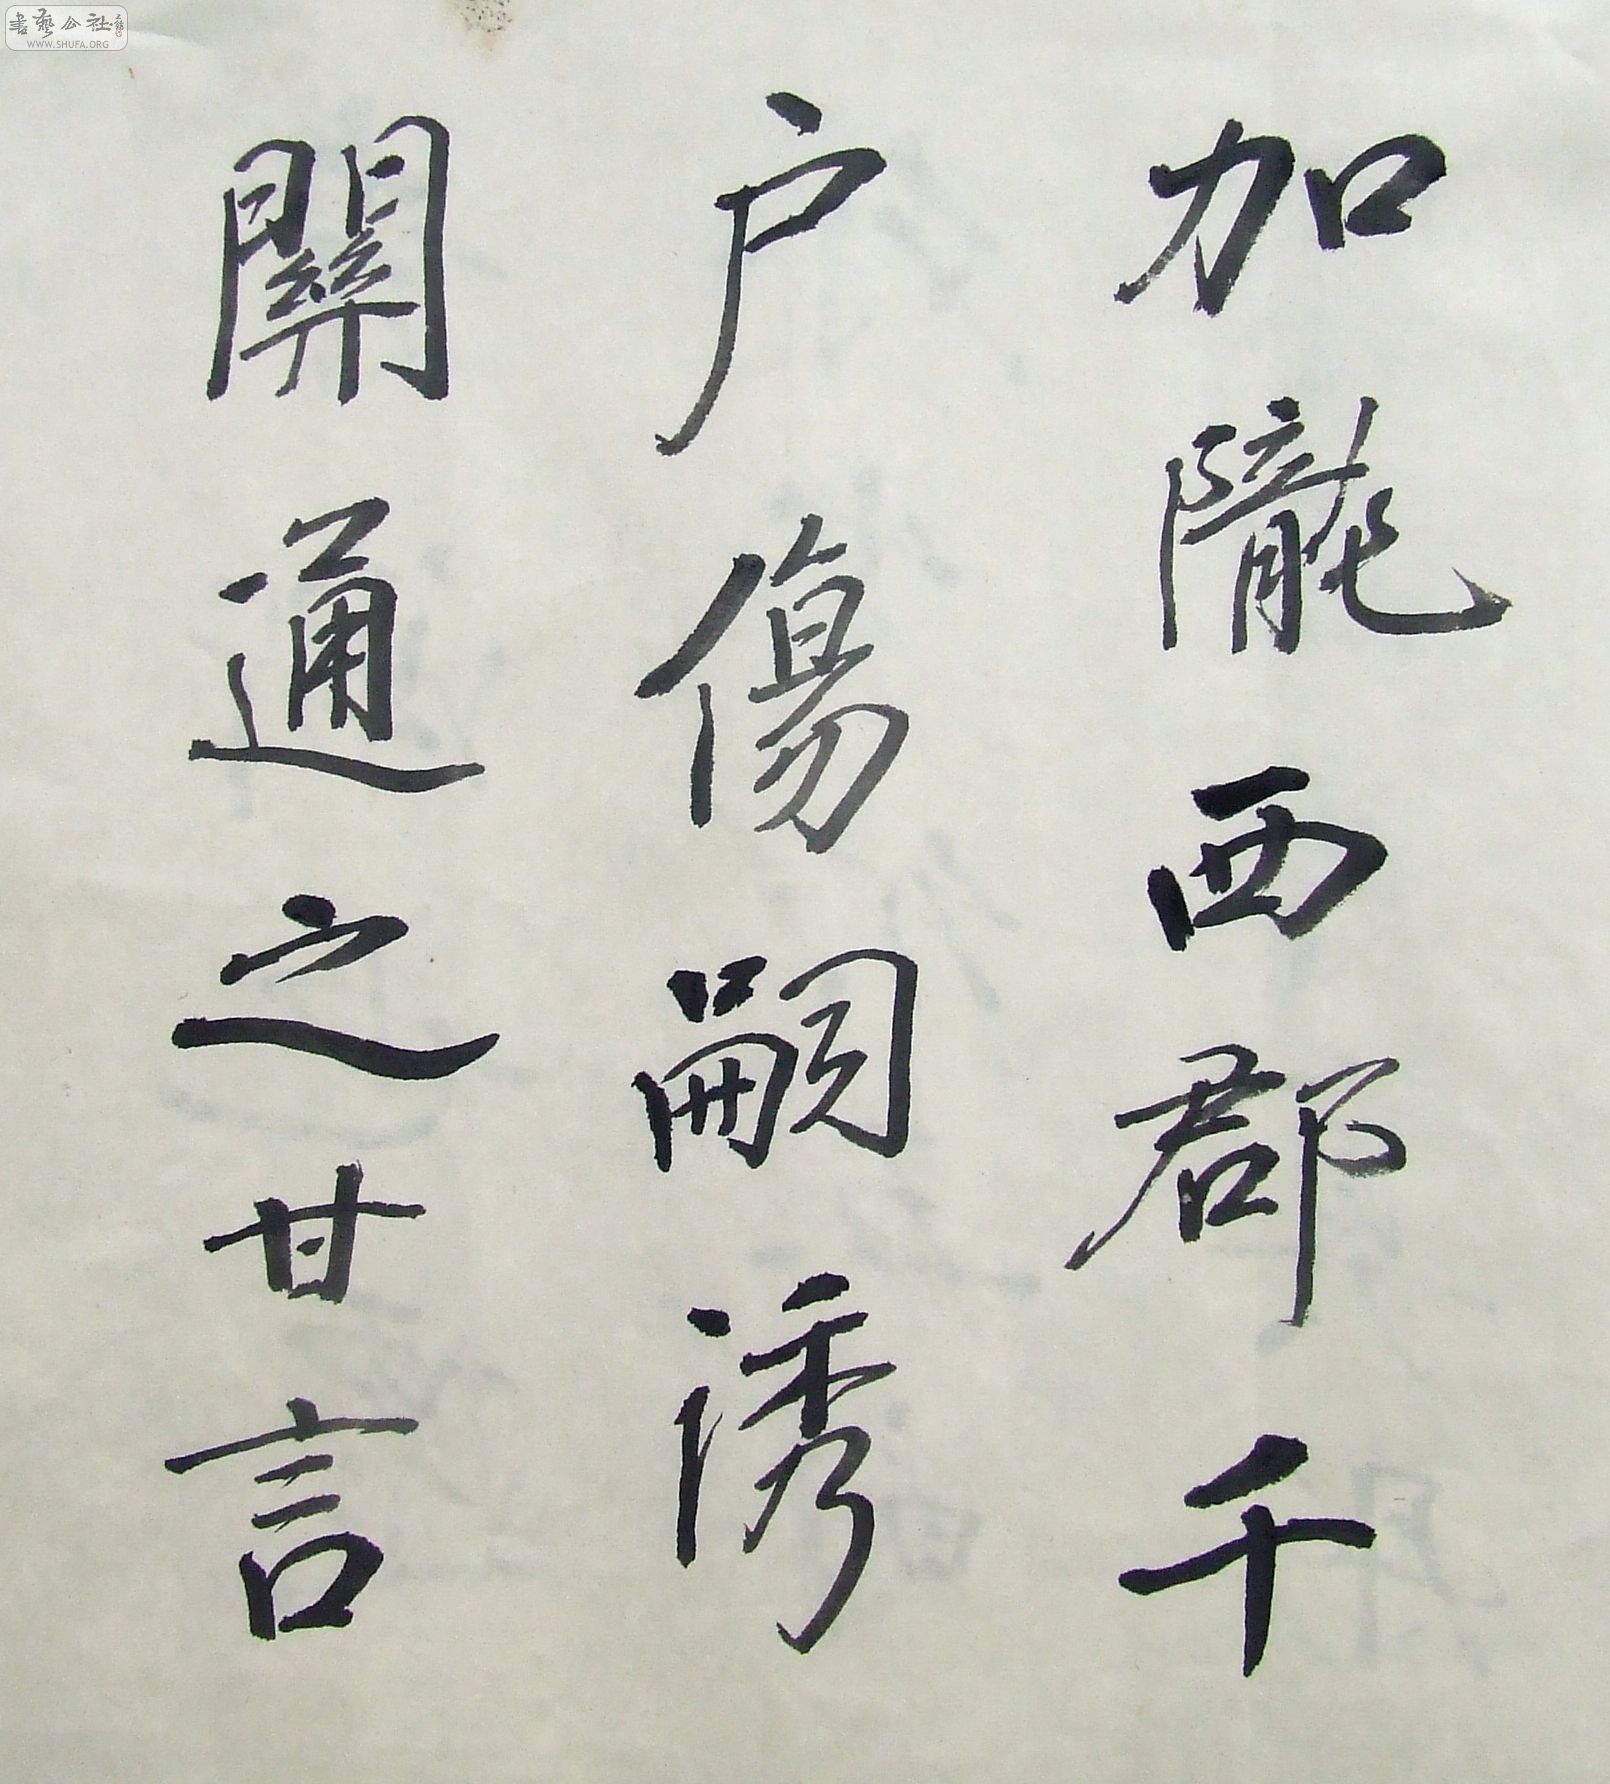 加隴西郡千
户傷嗣誘
關通之甘言
書藝公社
WWW.SHUFA.ORG